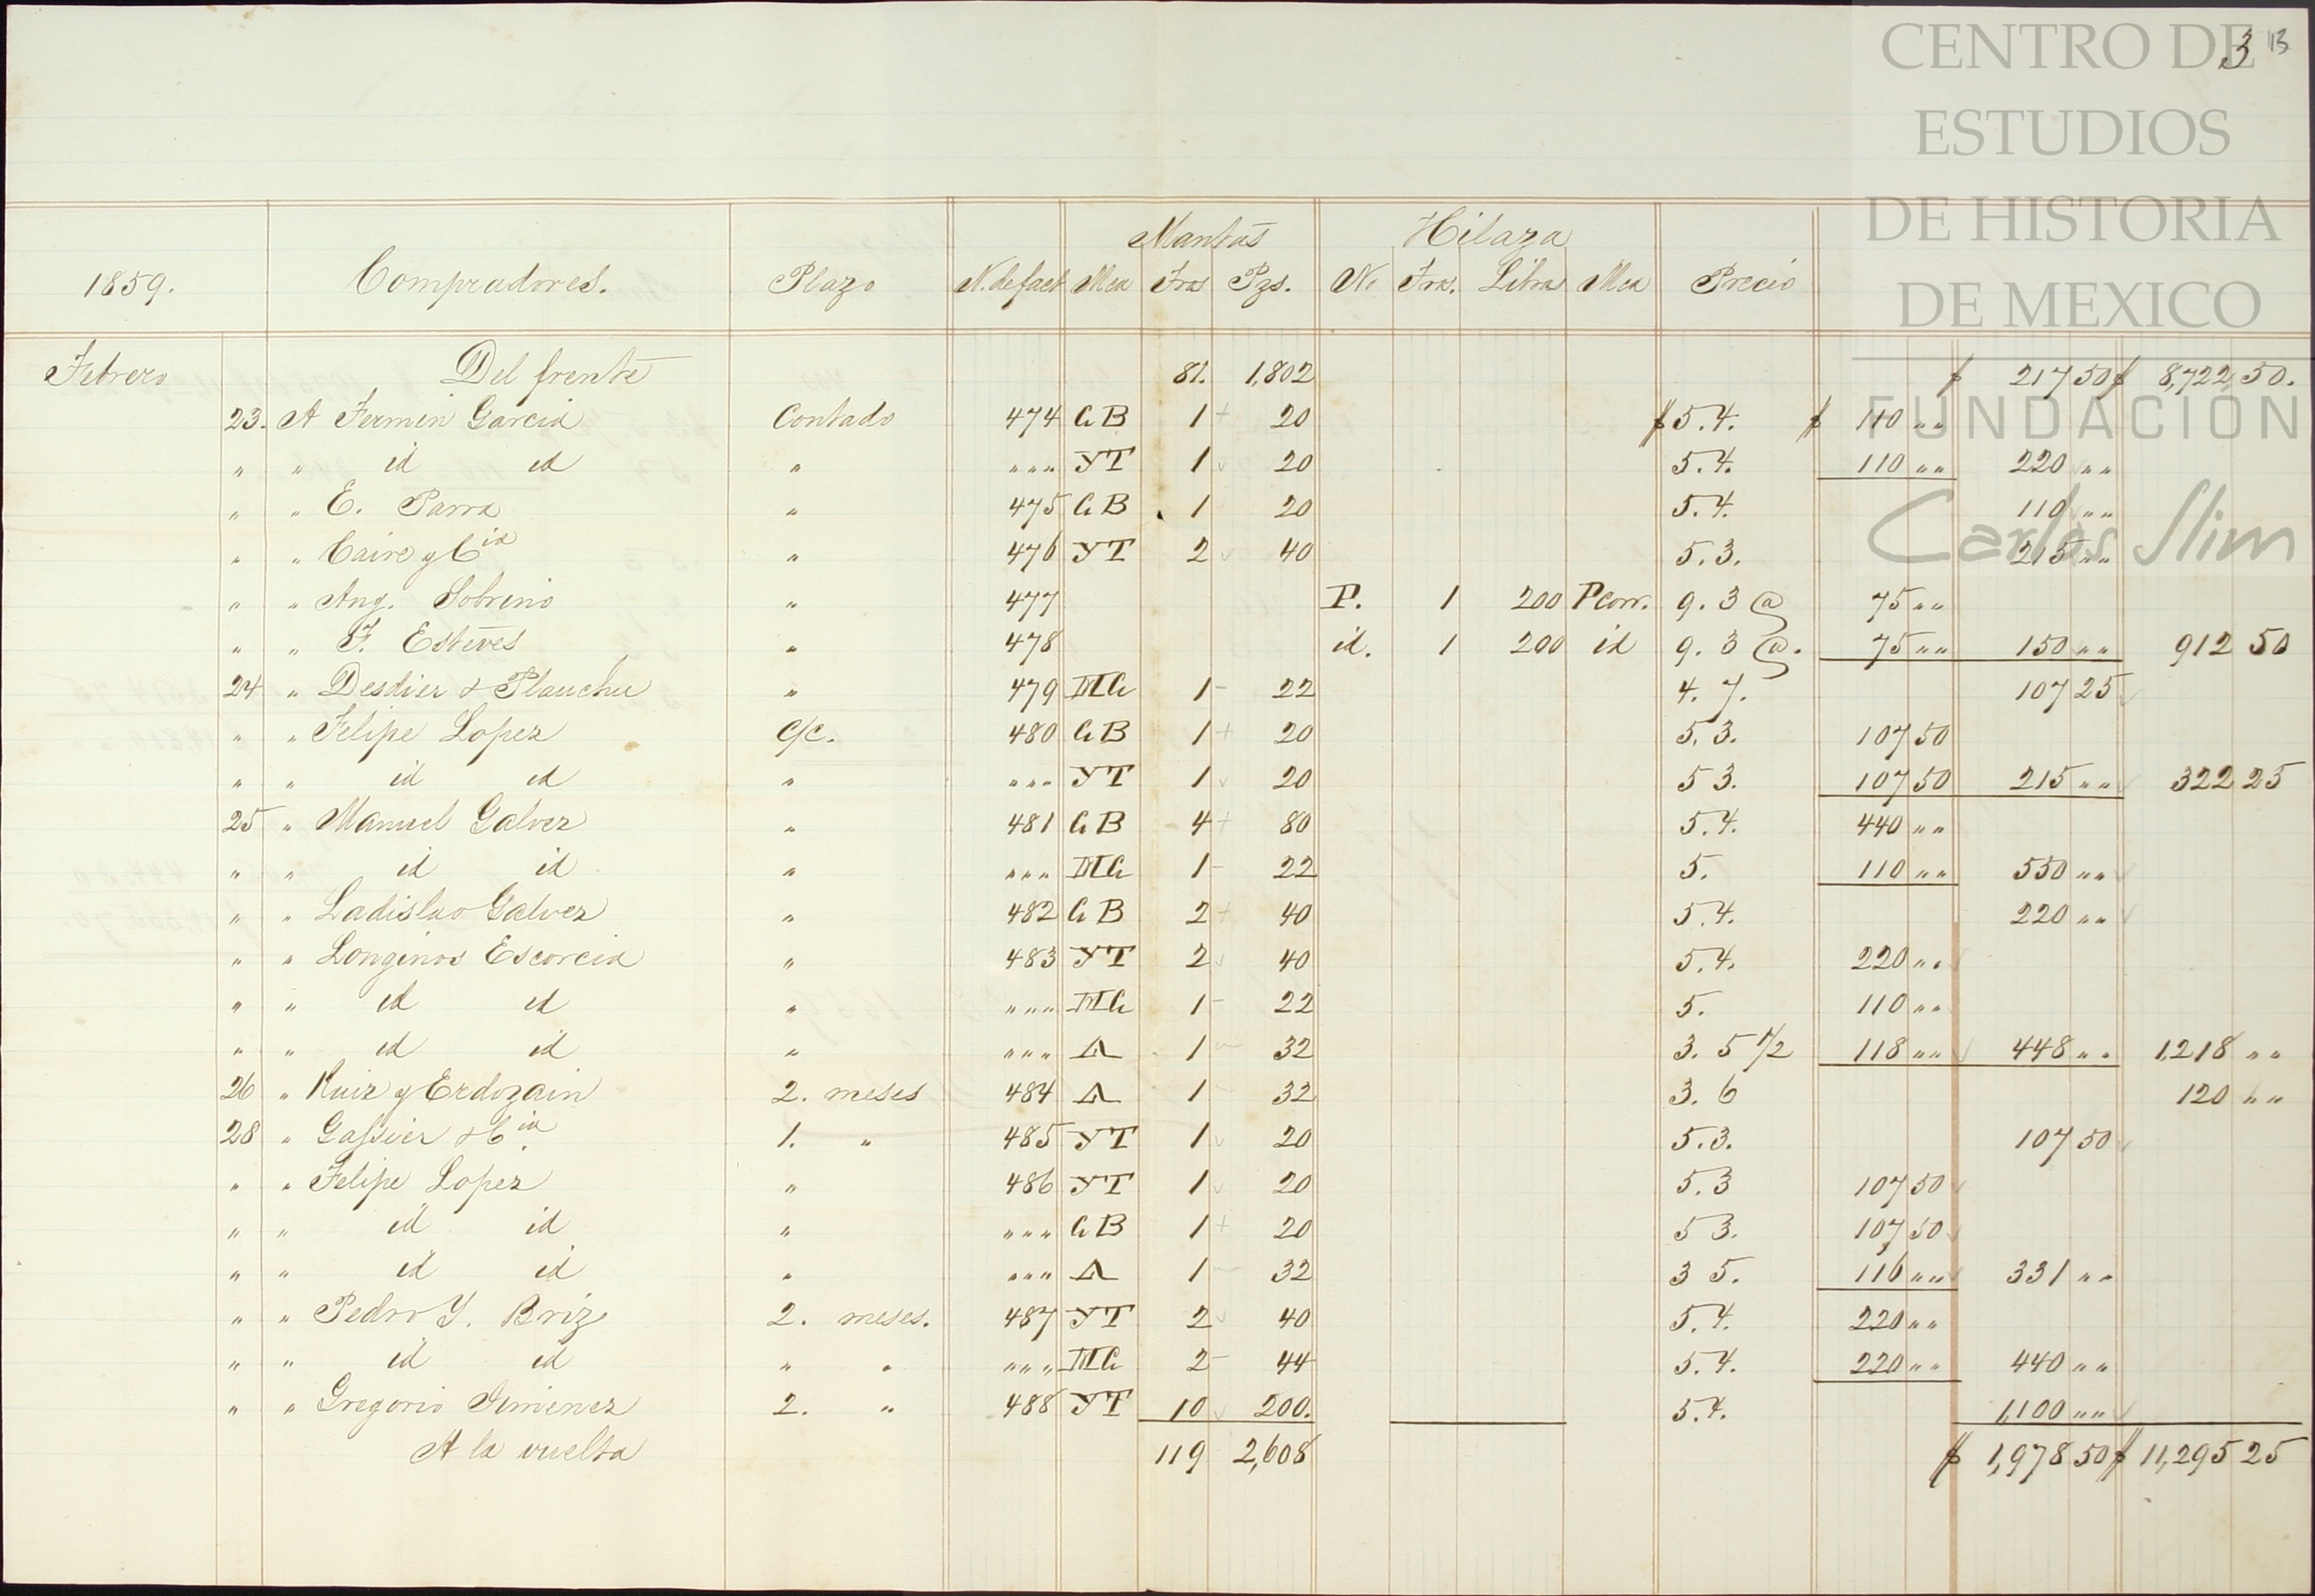 CENTRO DE
ESTUDIOS
DE HISTORIA
DE MEXICO
FUNDACIÓN
Carlos Slim
3 13
Mantas Hilaza
1859. Compradores. Plazo N. de fact Mca Fra Pzs. No Fra. Libra Mca Precio
Febrero Del frente 81. 1,802 $ 217 50 $ 8,722 50.
23. A Fermin Garcia Contado 474 GB 1 20 $ 5.4. $ 110 " "
" " id id " " " " YT 1 20 5.4. 110 " " 220 " "
" " E. Parra " 475 GB 1 20 5.4. 110 " "
" " Caire y Cia " 476 YT 2 40 5.3. 215 " "
" " Ang. Sobrino " 477 P. 1 200 P corr. 9.3 @ 75 " "
" " F. Esteves " 478 id. 1 200 id 9.3 @. 75 " " 150 " " 912 50
24 " Desdier & Plauchu " 479 MG 1 22 4.7. 107 25
" " Felipe Lopez C/C. 480 GB 1 20 5.3. 107 50
" " id id " " " " YT 1 20 5 3. 107 50 215 " " 322 25
25 " Manuel Galvez " 481 GB 4 80 5.4. 440 " "
" " id id " " " " MG 1 22 5. 110 " " 550 " "
" " Ladislao Galvez " 482 GB 2 40 5.4. 220 " "
" " Longinos Escorcia " 483 YT 2 40 5.4. 220 " "
" " id id " " " " MG 1 22 5. 110 " "
" " id id " " " " A 1 32 3. 5 1/2 118 " " 448 " " 1,218 " "
26 " Ruiz y Erdozain 2. meses 484 A 1 32 3. 6 120 " "
28 " Gassier & Cia. 1. " 485 YT 1 20 5.3. 107 50
" " Felipe Lopez " 486 YT 1 20 5.3 107 50
" " id id " " " " GB 1 20 5 3. 107 50
" " id id " " " " A 1 32 3 5. 116 " " 331 " "
" " Pedro Y. Briz 2. meses. 487 YT 2 40 5.4. 220 " "
" " id id " " " " " MG 2 44 5.4. 220 " " 440 " "
" " Gregorio Jimenez 2. " 488 YT 10 200. 5.4. 1,100 " "
A la vuelta 119 2,608 $ 1,978 50 $ 11,295 25